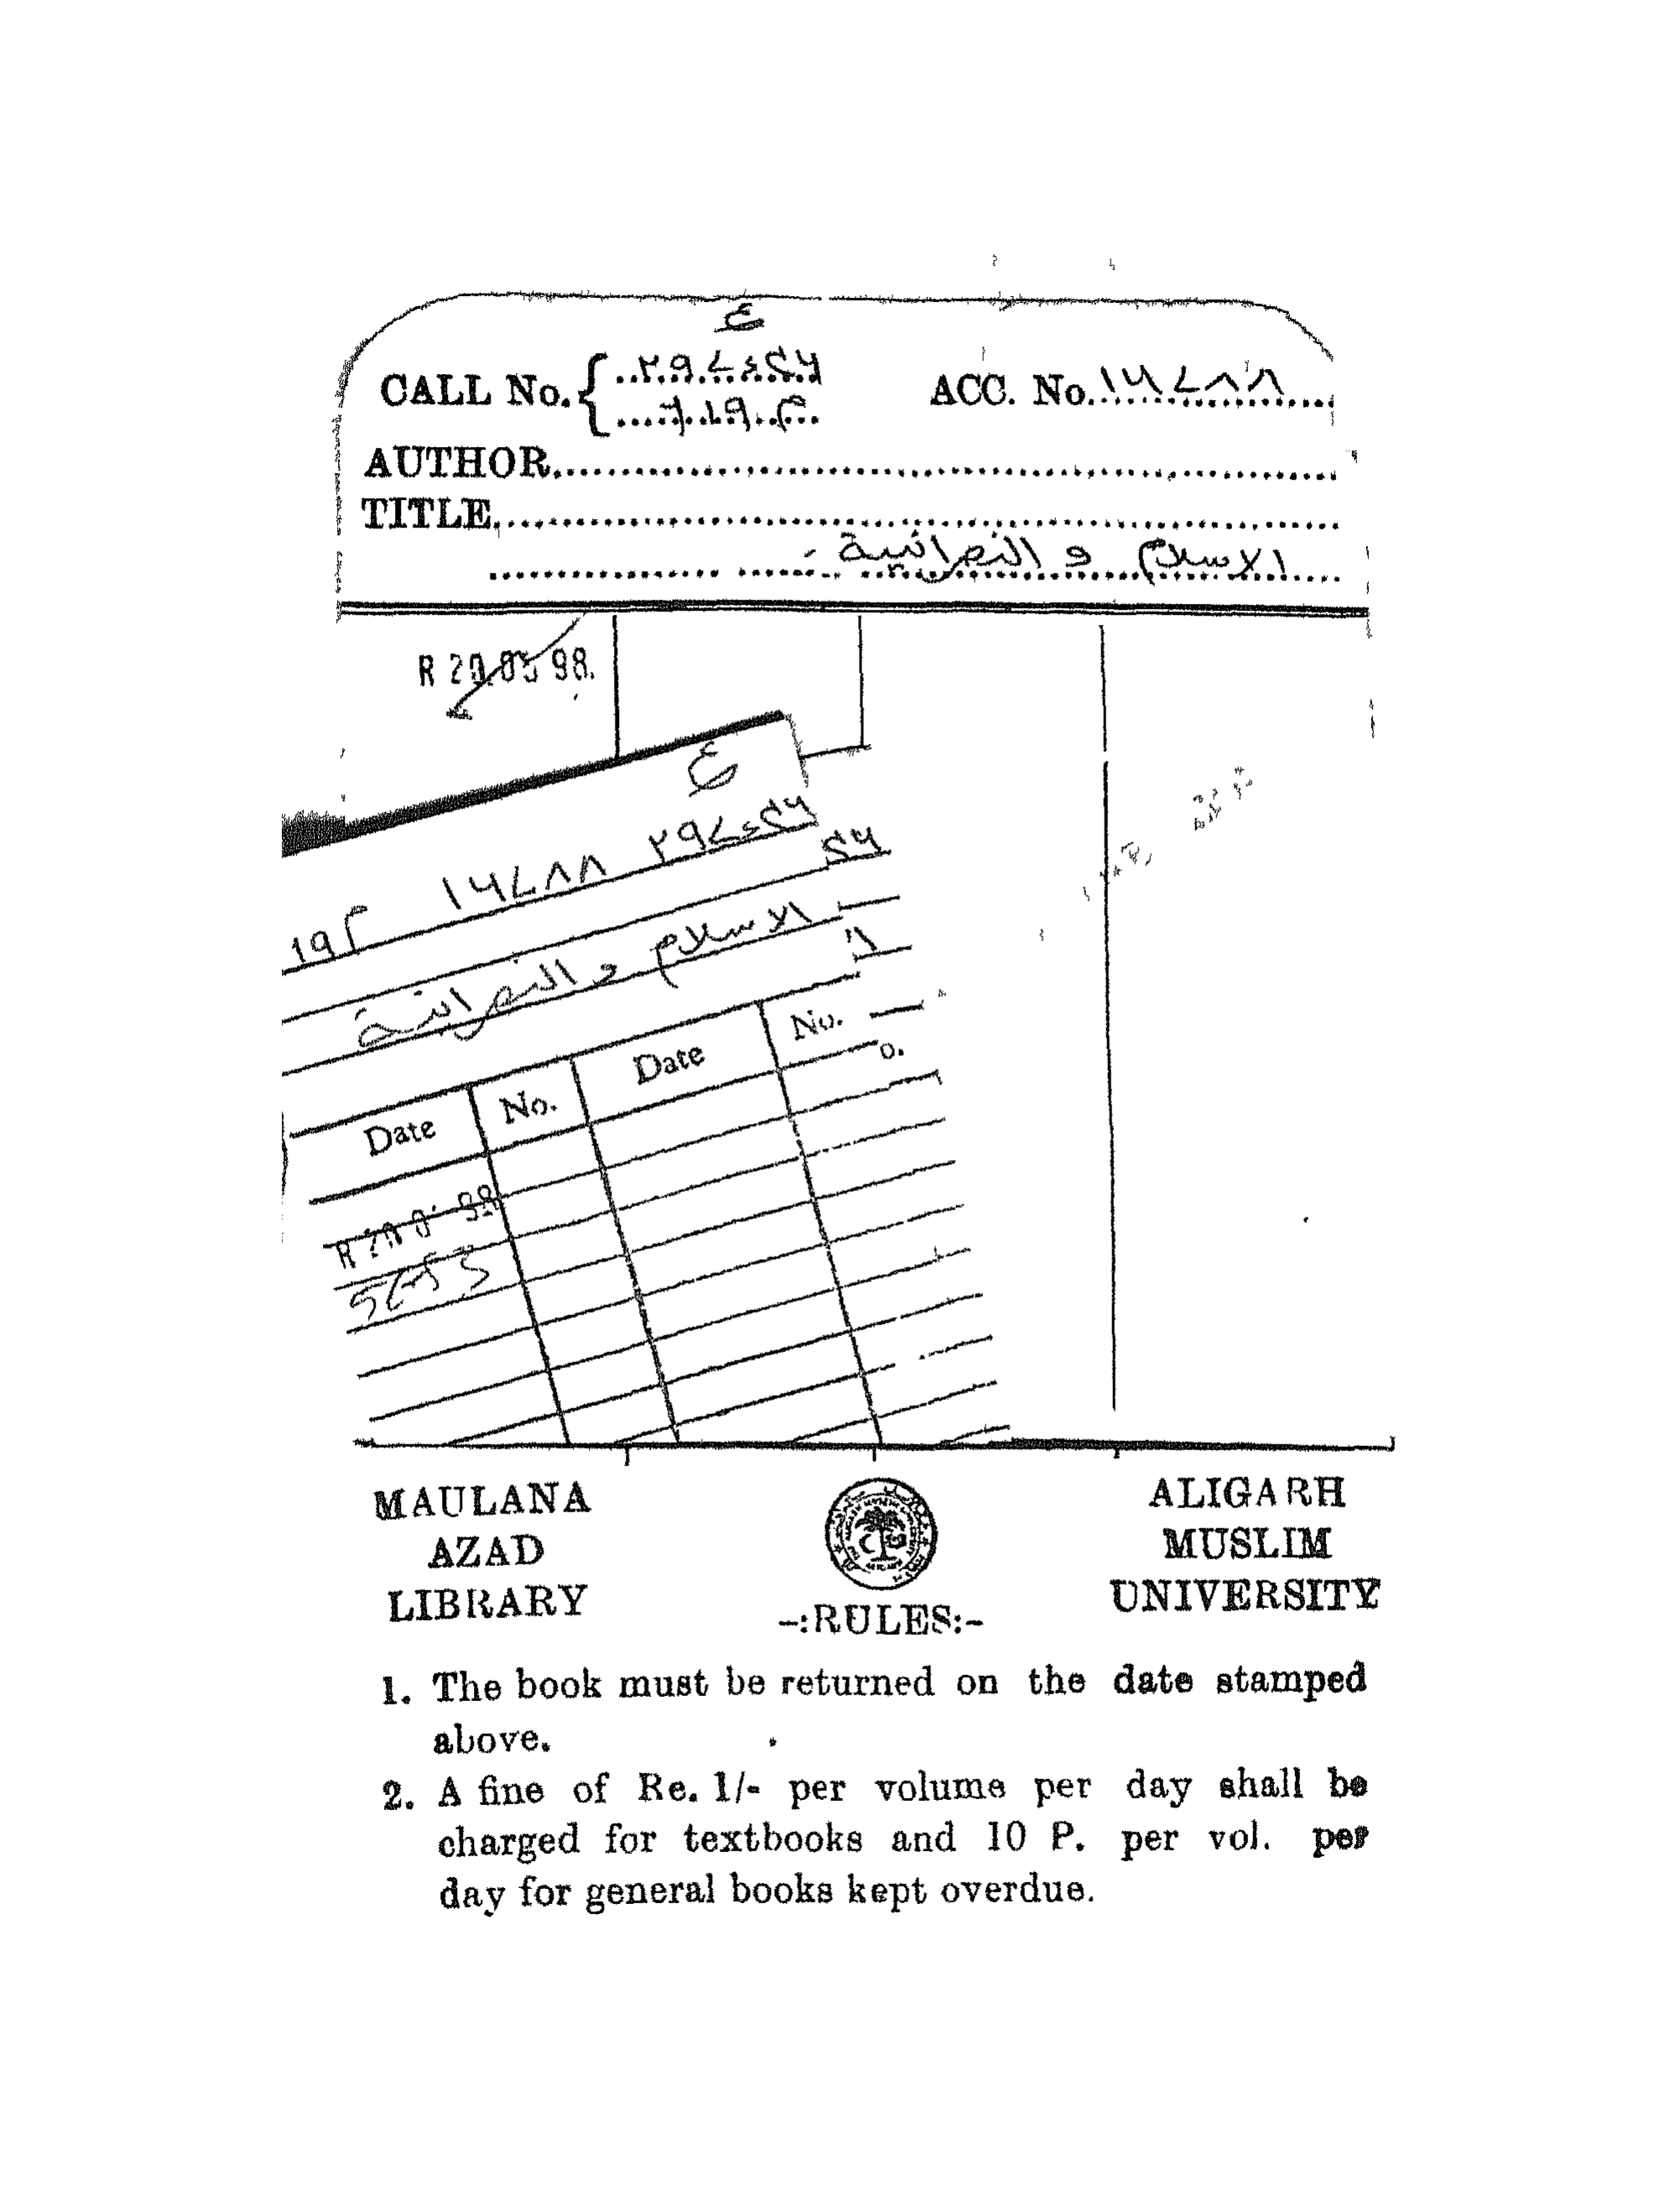 ع
CALL No. { ٢٩٧٤٢٦ ACC. No. ١٦٧٨٨
١٩م
AUTHOR
TITLE
الاسلام و النصرانية -
R 20.05 98.
ع
١٩م ١٦٧٨٨ ٢٩٧٤٢٦
الاسلام و النصرانية
Date No. Date No.
o.
MAULANA AZAD LIBRARY
ALIGARH MUSLIM UNIVERSITY
-:RULES:-
1. The book must be returned on the date stamped
above.
2. A fine of Re. 1/- per volume per day shall be
charged for textbooks and 10 P. per vol. per
day for general books kept overdue.